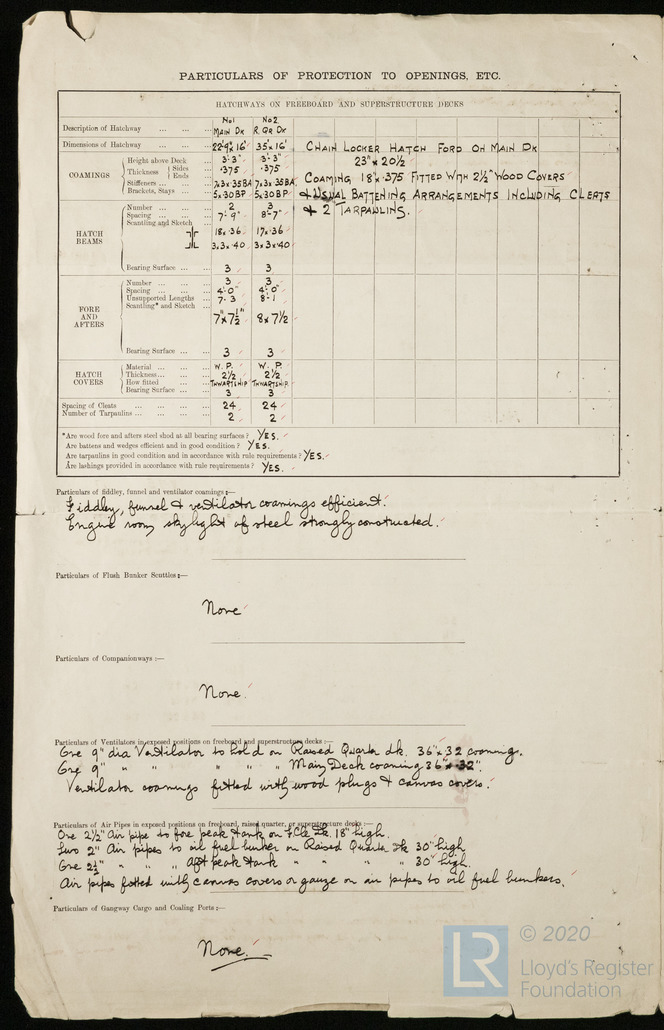 PARTICULARS OF PROTECTION TO OPENINGS, ETC.
HATCHWAYS ON FREEBOARD AND SUPERSTRUCTURE DECKS
No1 No2
Description of Hatchway ... ... ... MAIN DK R. QR DK
Dimensions of Hatchway ... ... 22'9"x16' 35'x16' CHAIN LOCKER HATCH FORD ON MAIN DK
COAMINGS
Height above Deck ... 3'.3" 3'.3" 23" x 20½
Thickness Sides .375 .375
Ends COAMING 18"x.375 FITTED WITH 2½" WOOD COVERS
Stiffeners ... ... ... 7x3x.35BA 7x3x.35BA
Brackets, Stays ... ... 5x.30 BP 5x.30 BP & USUAL BATTENING ARRANGEMENTS INCLUDING CLEATS
& 2 TARPAULINS.
HATCH BEAMS
Number ... ... ... 2 3
Spacing ... ... ... 7'-9" 8'-7"
Scantling and Sketch
18x.36 17x.36
3.3x.40 3x3x.40
Bearing Surface ... ... 3 3
FORE AND AFTERS
Number ... ... ... 3 3
Spacing ... ... ... 4'.0" 4'.0"
Unsupported Lengths ... 7.3 8.1
Scantling* and Sketch ...
7"x7½" 8x7½
Bearing Surface ... ... 3 3
HATCH COVERS
Material ... ... ... W.P. W.P.
Thickness... ... ... 2½ 2½
How fitted ... ... THWARTSHIP THWARTSHIP
Bearing Surface ... ... 3 3
Spacing of Cleats ... ... ... ... 24 24
Number of Tarpaulins ... ... ... ... 2 2
*Are wood fore and afters steel shod at all bearing surfaces ? YES.
Are battens and wedges efficient and in good condition ? YES.
Are tarpaulins in good condition and in accordance with rule requirements ? YES.
Are lashings provided in accordance with rule requirements ? YES.
Particulars of fiddley, funnel and ventilator coamings :—
Fiddley, funnel & ventilator coamings efficient.
Engine room skylight of steel strongly constructed.
Particulars of Flush Bunker Scuttles :—
None
Particulars of Companionways :—
None.
Particulars of Ventilators in exposed positions on freeboard and superstructure decks :—
One 9" dia Ventilator to hold on Raised Quarter dk. 36"x.32 coaming.
One 9" " " " " " Main Deck coaming 36"x.32".
Ventilator coamings fitted with wood plugs & canvas covers.
Particulars of Air Pipes in exposed positions on freeboard, raised quarter, or superstructure decks :—
One 2½" Air pipe to fore peak tank on F.Cle Dk. 18" high.
Two 2" Air pipes to oil fuel bunker on Raised Quarter Dk 30" high
One 2½" " " " Aft peak tank " " " " 30" high.
Air pipes fitted with canvas covers or gauze on air pipes to oil fuel bunkers.
Particulars of Gangway Cargo and Coaling Ports :—
None.
LR
© 2020
Lloyd's Register
Foundation